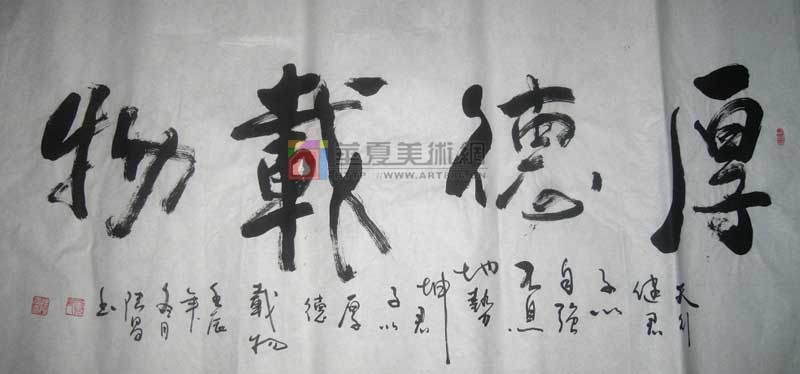 厚德載物
天行
健君
子以
自強
不息
地勢
坤君
子以
厚
德
載物
壬辰
年
冬月
陸昌
書
華夏美術網
WWW.ARTSXJ.CN